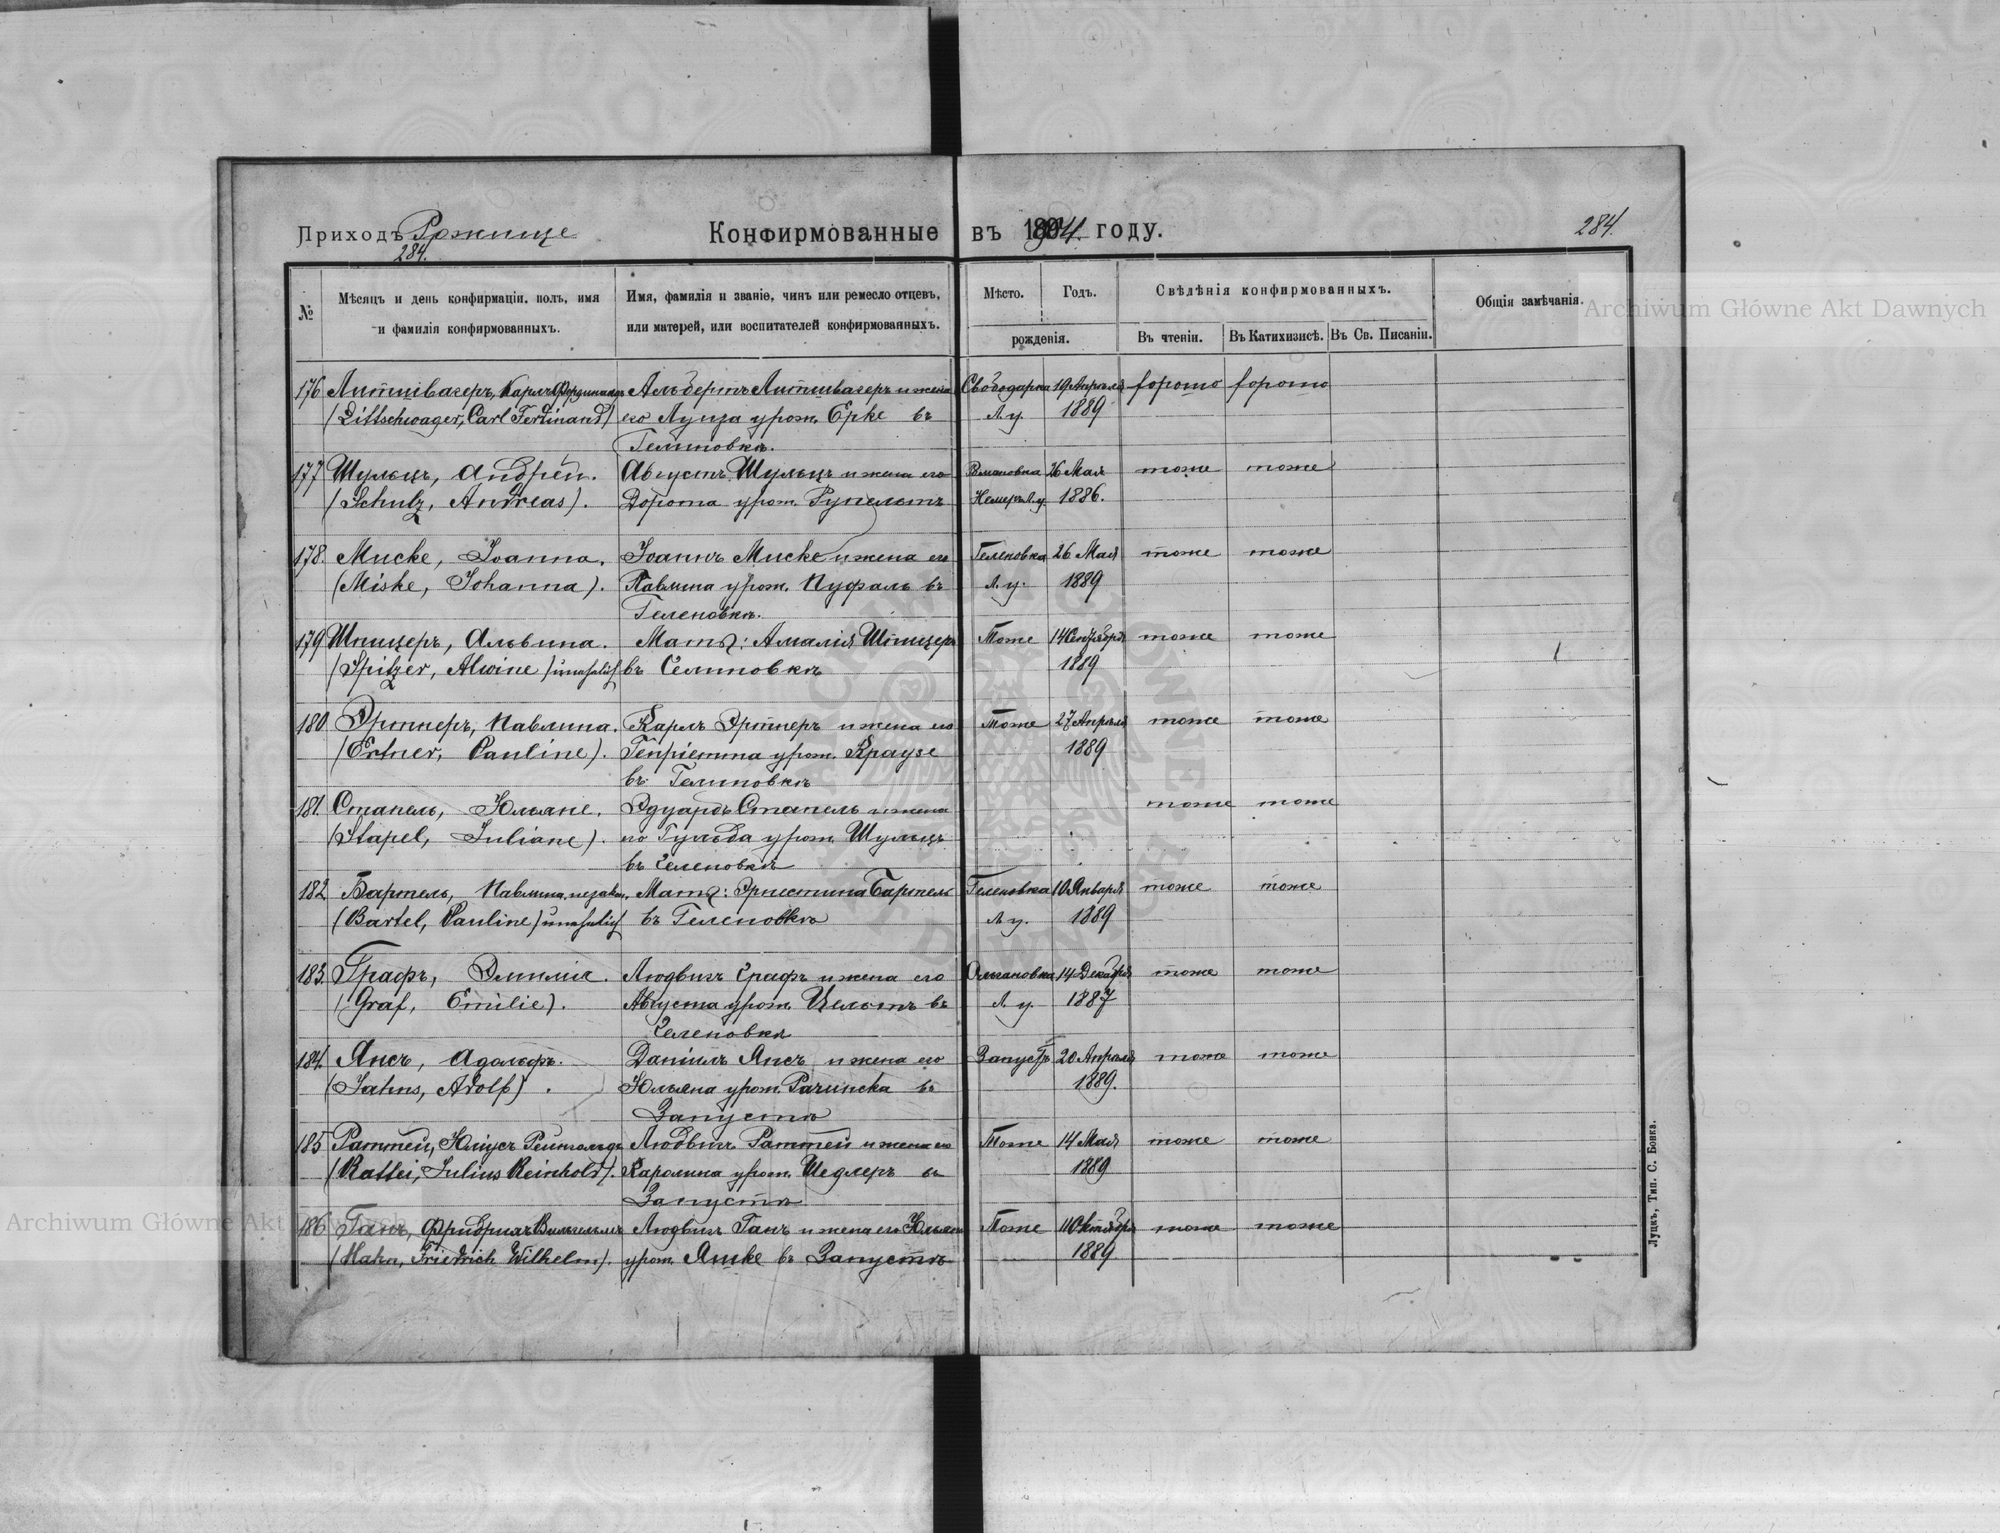 Приходъ Рожище
284.
Конфирмованные въ 1904 году.
284.
№
Мѣсяцъ и день конфирмаціи, полъ, имя
и фамилія конфирмованныхъ.
Имя, фамилія и званіе, чинъ или ремесло отцевъ,
или матерей, или воспитателей конфирмованныхъ.
Мѣсто.
Годъ.
рожденія.
Свѣдѣнія конфирмованныхъ.
Въ чтеніи.
Въ Катихизисѣ.
Въ Св. Писаніи.
Общія замѣчанія.
Archiwum Główne Akt Dawnych
176 Литшвагеръ, Карлъ Фердинандъ Альбертъ Литшвагеръ и жена Свободарка 19 Апрѣля хорошо хорошо
(Littschwager, Carl Ferdinand) его Луиза урож. Ерке въ Л. у. 1889
Гелиновкѣ.
177 Шульцъ, Андрей. Августъ Шульцъ и жена его 26 Мая тоже тоже
(Schulz, Andreas). Дорота урож. 1886.
178. Миске, Іоанна. Іоаннъ Миске и жена его Геленовка 26 Мая тоже тоже
(Miske, Johanna). Павлина урож. Пуфаль въ Л. у. 1889
Геленовкѣ.
179 Шпицеръ, Альвина. Мать: Амалія Шпицеръ Тоже 14 Сентября тоже тоже
(Spitzer, Alwine) unehelich въ Гелиновкѣ 1889
180 Эртнеръ, Павлина. Карлъ Эртнеръ и жена его Тоже 27 Апрѣля тоже тоже
(Ertner, Pauline). Генріетта урож. Краузе 1889
въ Гелиновкѣ
181. Стапель, Юльяне. Эдуардъ Стапель и жена тоже тоже
(Stapel, Juliane). его Гульда урож. Шульцъ
въ Геленовкѣ
182 Бартель, Павлина, незакон. Мать: Эрнестина Бартель Геленовка 10 Января тоже тоже
(Bartel, Pauline) unehelich въ Геленовкѣ Л. у. 1889
183. Графъ, Эмилія. Людвигъ Графъ и жена его Ольгановка 14 Декабря тоже тоже
(Graf, Emilie). Августа урож. Цельтъ въ Л. у. 1887
Геленовкѣ
184. Янсъ, Адольфъ. Даніилъ Янсъ и жена его Запустъ 20 Апрѣля тоже тоже
(Jahns, Adolf). Юльяна урож. Рачинска въ 1889.
Запустѣ
185 Раттей, Юліусъ Рейнгольдъ Людвигъ Раттей и жена его Тоже 14 Мая тоже тоже
(Rattei, Julius Reinhold). Каролина урож. Шедлеръ въ 1889
Запустѣ
186 Ганъ, Фридрихъ Вильгельмъ Людвигъ Ганъ и жена его Юльяна Тоже 11 Октября тоже тоже
(Hahn, Friedrich Wilhelm). урож. Яшке въ Запустѣ 1889
Archiwum Główne Akt Dawnych
Луцкъ, Тип. С. Бокка.